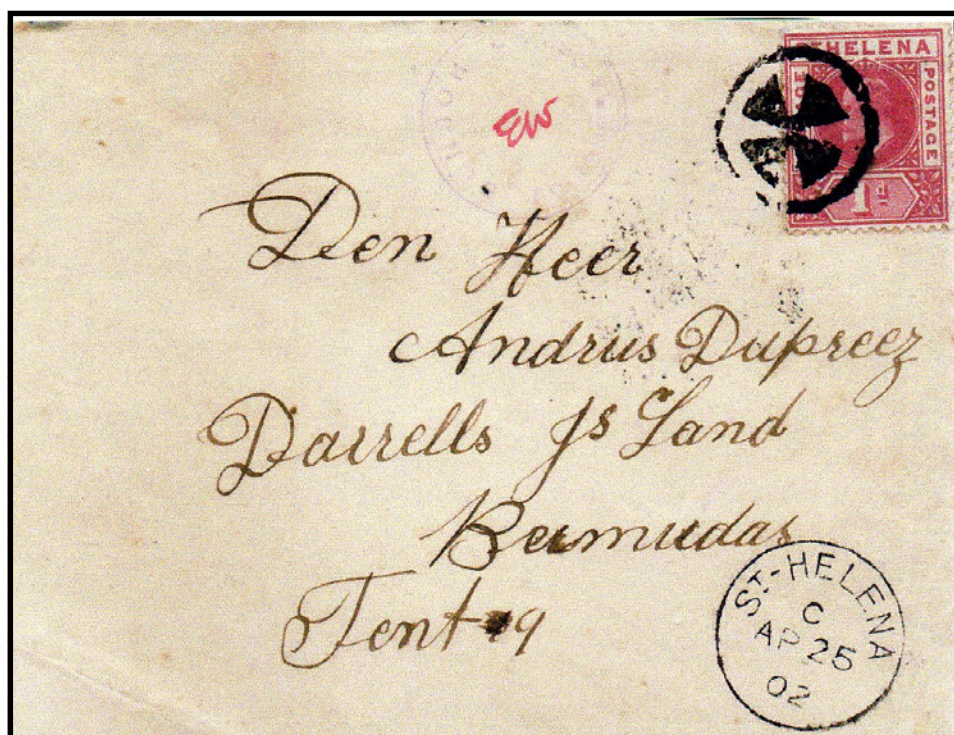 ST HELENA
POSTAGE
1d
EW
Den Heer
Andrus Dupreez
Darrells Js Land
Bermudas
Tent 19
ST.-HELENA
C
AP 25
02